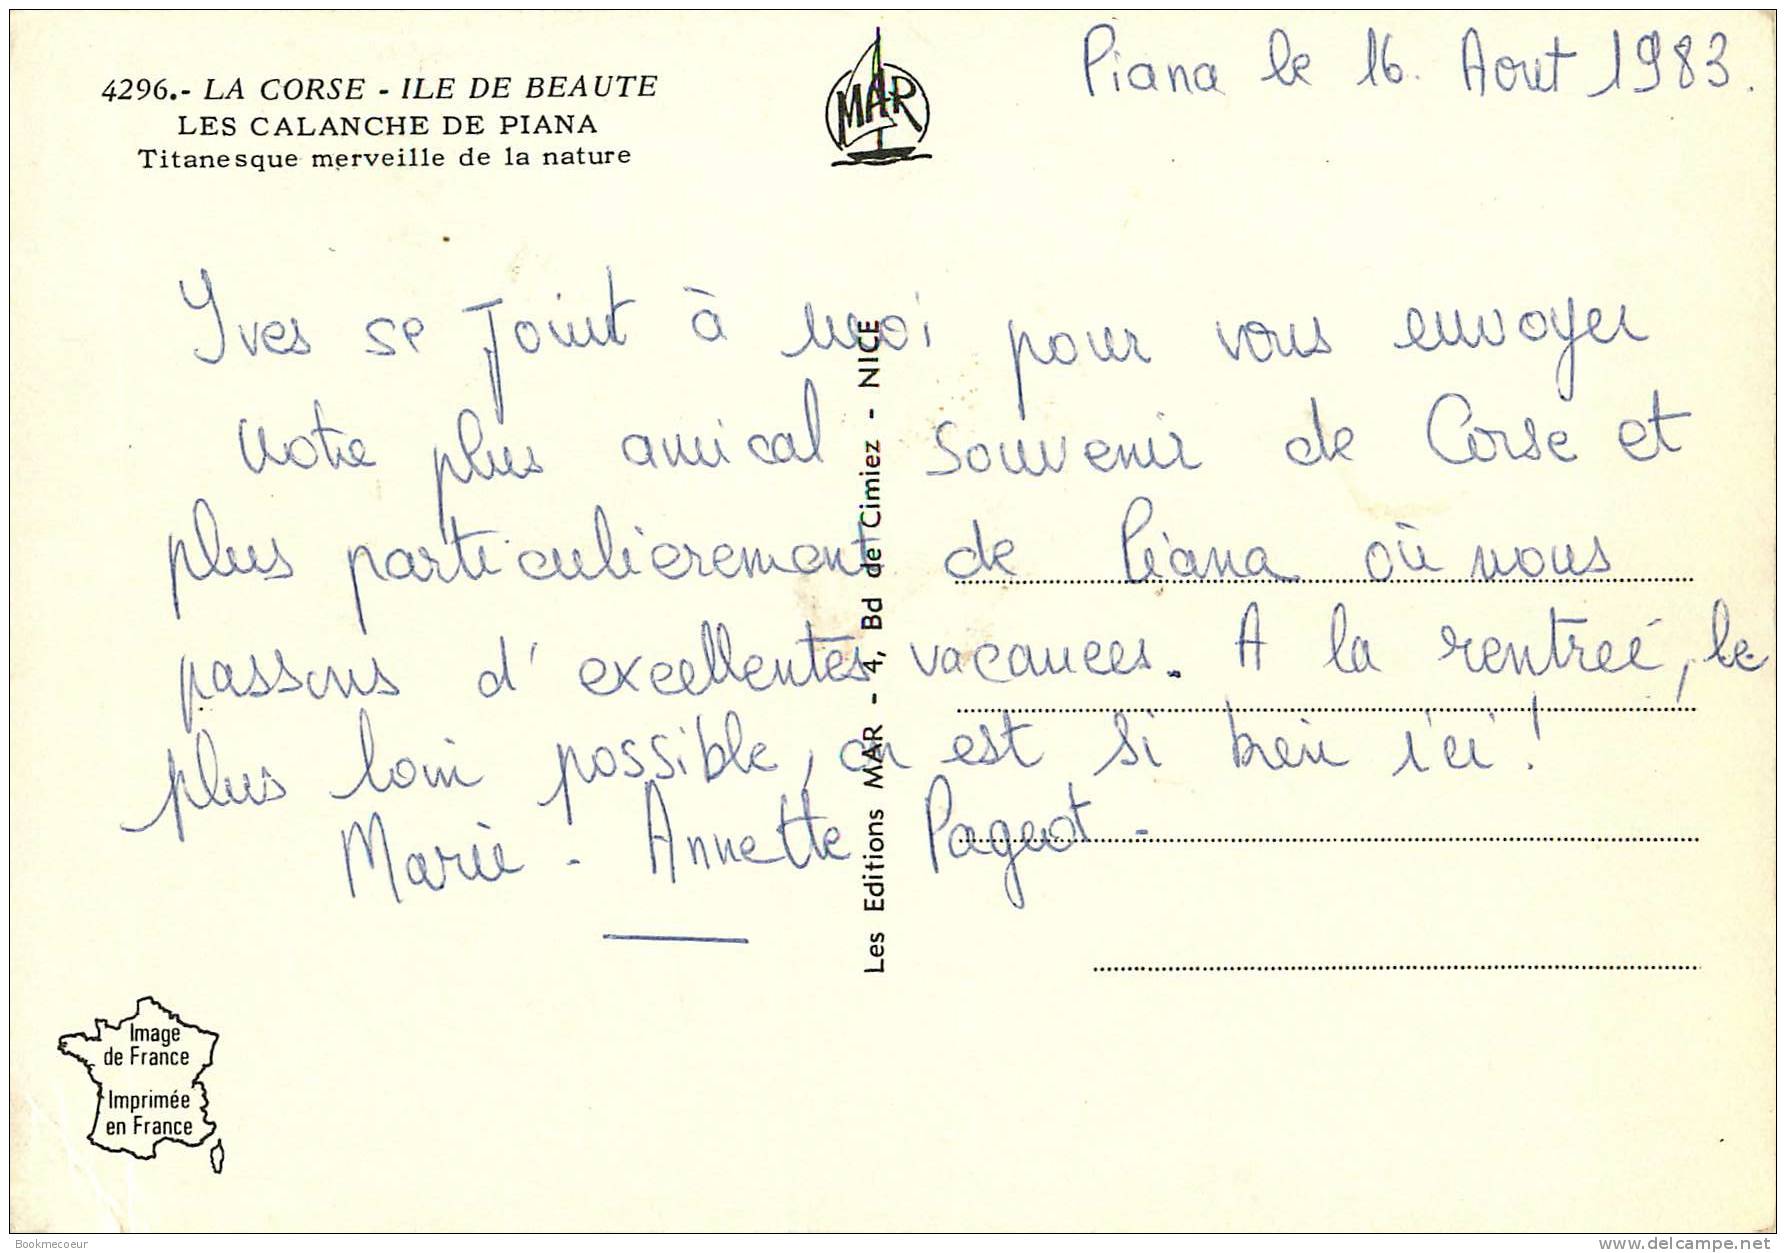 4296.- LA CORSE - ILE DE BEAUTE
LES CALANCHE DE PIANA
Titanesque merveille de la nature
MAR
Piana le 16. Aout 1983.
Yves se Joint à moi pour vous envoyer
notre plus amical souvenir de Corse et
plus particulièrement de Piana où nous
passons d'excellentes vacances. A la rentreé, le
plus loin possible, on est si bien ici!
Marie - Annette Pageot -
Les Editions MAR - 4, Bd de Cimiez - NICE
Image
de France
Imprimée
en France
Bookmecoeur
www.delcampe.net